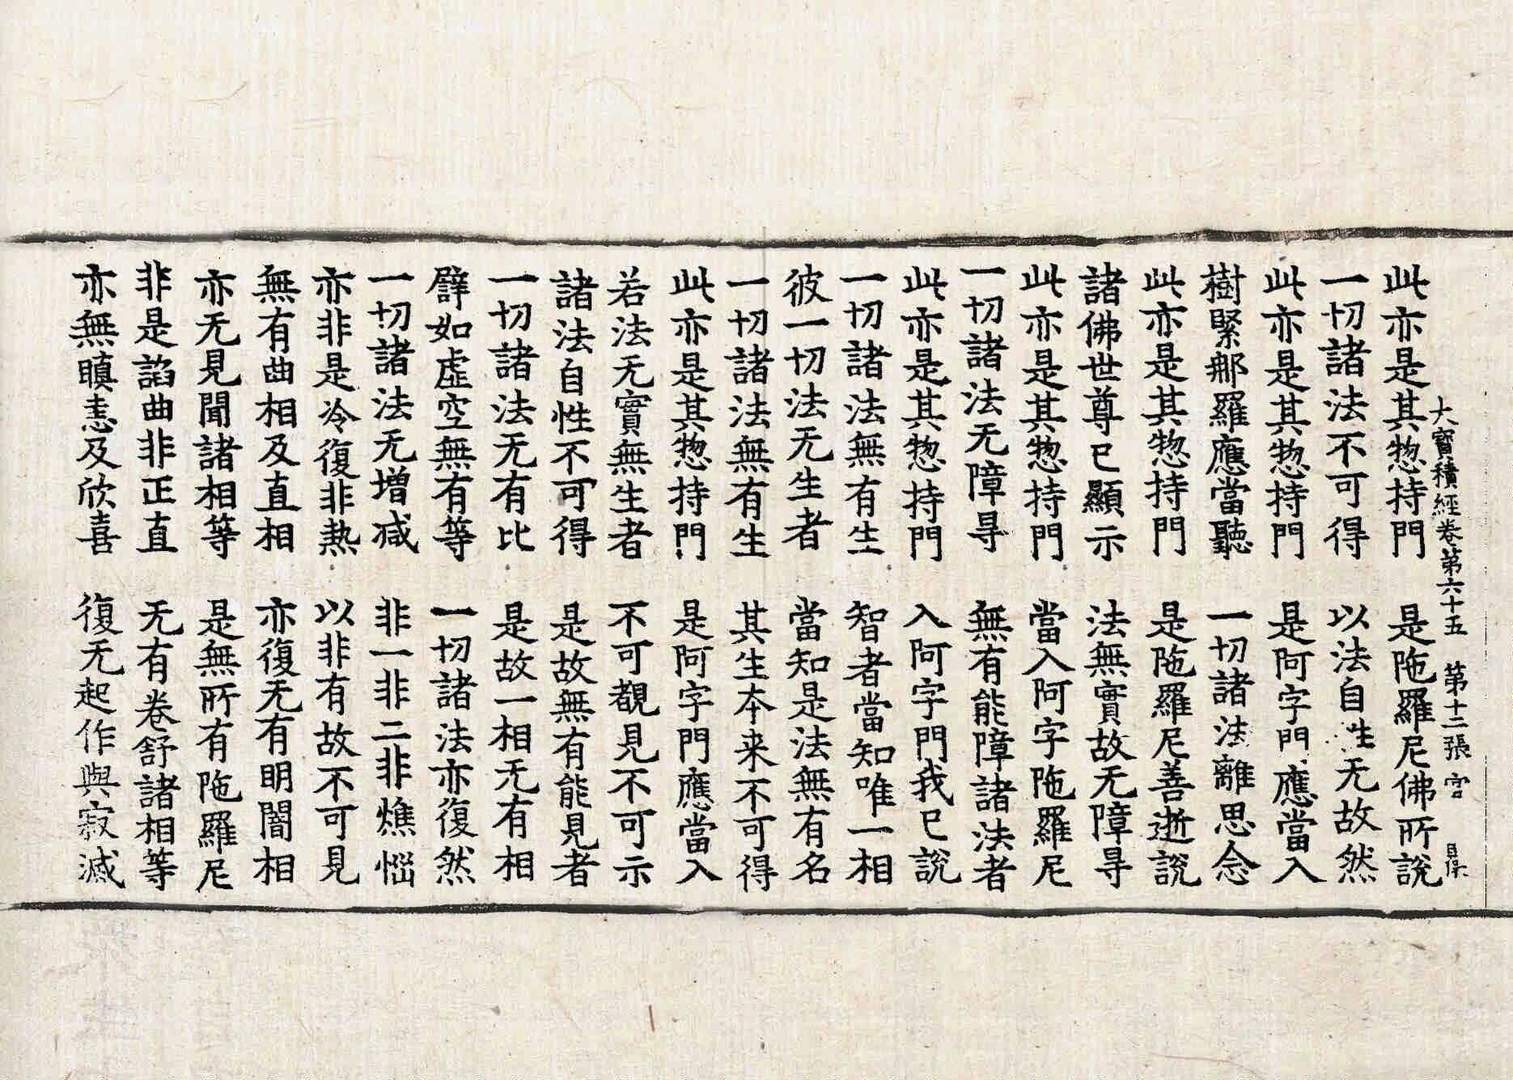 大寶積經卷第六十五 第十二張 官
此亦是其惣持門 是陁羅尼佛所說
一切諸法不可得 以法自性无故然
此亦是其惣持門 是阿字門應當入
樹緊那羅應當聽 一切諸法離思念
此亦是其惣持門 是陁羅尼善逝說
諸佛世尊已顯示 法無實故无障㝵
此亦是其惣持門 當入阿字陁羅尼
一切諸法无障㝵 無有能障諸法者
此亦是其惣持門 入阿字門我已說
一切諸法無有生 智者當知唯一相
彼一切法无生者 當知是法無有名
一切諸法無有生 其生本来不可得
此亦是其惣持門 是阿字門應當入
若法无實無生者 不可觀見不可示
諸法自性不可得 是故無有能見者
一切諸法无有比 是故一相无有相
譬如虛空無有等 一切諸法亦復然
一切諸法无增减 非一非二非燋惱
亦非是冷復非熱 以非有故不可見
無有曲相及直相 亦復无有明闇相
亦无見聞諸相等 是無所有陁羅尼
非是諂曲非正直 无有卷舒諸相等
亦無瞋恚及欣喜 復无起作與寂滅